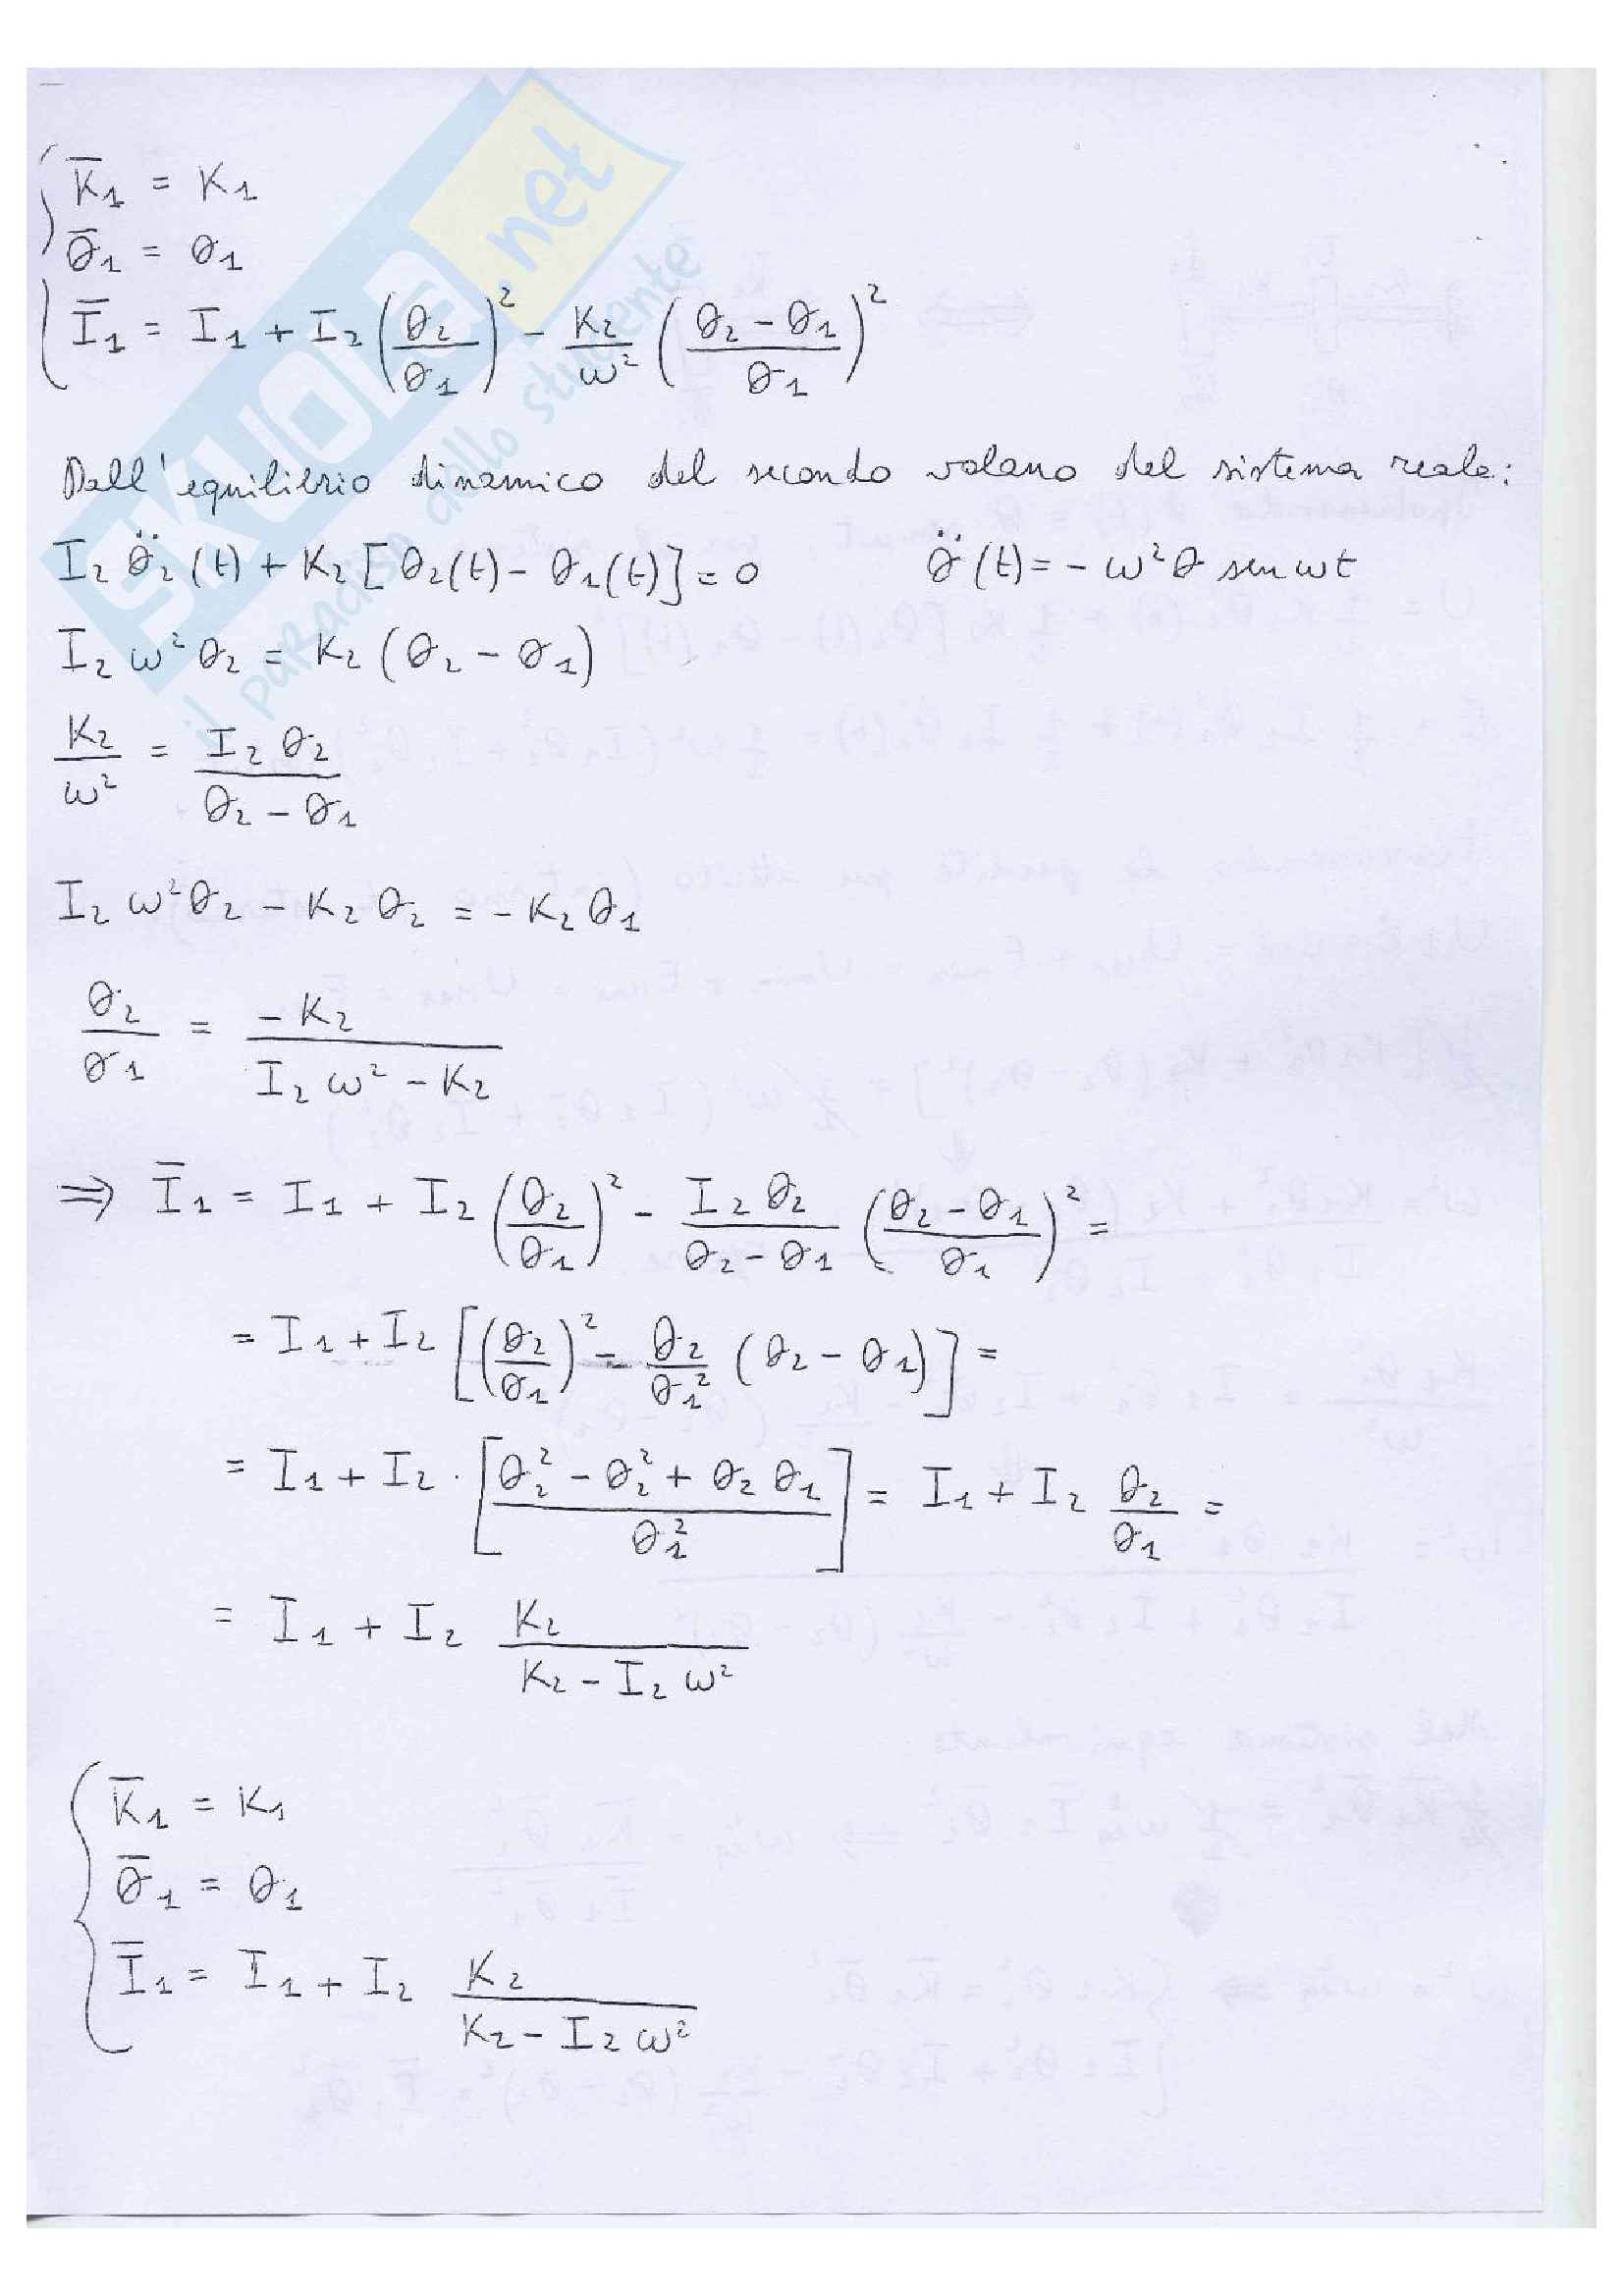 K̄₁ = K₁
θ̄₁ = θ₁
Ī₁ = I₁ + I₂ (θ₂/θ₁)² - K₂/ω² ((θ₂ - θ₁)/θ₁)²
Dall'equilibrio dinamico del secondo volano del sistema reale:
I₂ θ̈₂(t) + K₂[θ₂(t) - θ₁(t)] = 0 θ̈(t) = - ω²θ sen ωt
I₂ ω² θ₂ = K₂ (θ₂ - θ₁)
K₂/ω² = I₂ θ₂/(θ₂ - θ₁)
I₂ ω²θ₂ - K₂ θ₂ = - K₂ θ₁
θ₂/θ₁ = -K₂/(I₂ ω² - K₂)
⇒ Ī₁ = I₁ + I₂ (θ₂/θ₁)² - I₂ θ₂/(θ₂ - θ₁) ((θ₂ - θ₁)/θ₁)² =
= I₁ + I₂ [(θ₂/θ₁)² - θ₂/θ₁² (θ₂ - θ₁)] =
= I₁ + I₂ · [(θ₂² - θ₂² + θ₂ θ₁)/θ₁²] = I₁ + I₂ θ₂/θ₁ =
= I₁ + I₂ K₂/(K₂ - I₂ ω²)
K̄₁ = K₁
θ̄₁ = θ₁
Ī₁ = I₁ + I₂ K₂/(K₂ - I₂ ω²)
SKUOLA.net
il paradiso dello studente